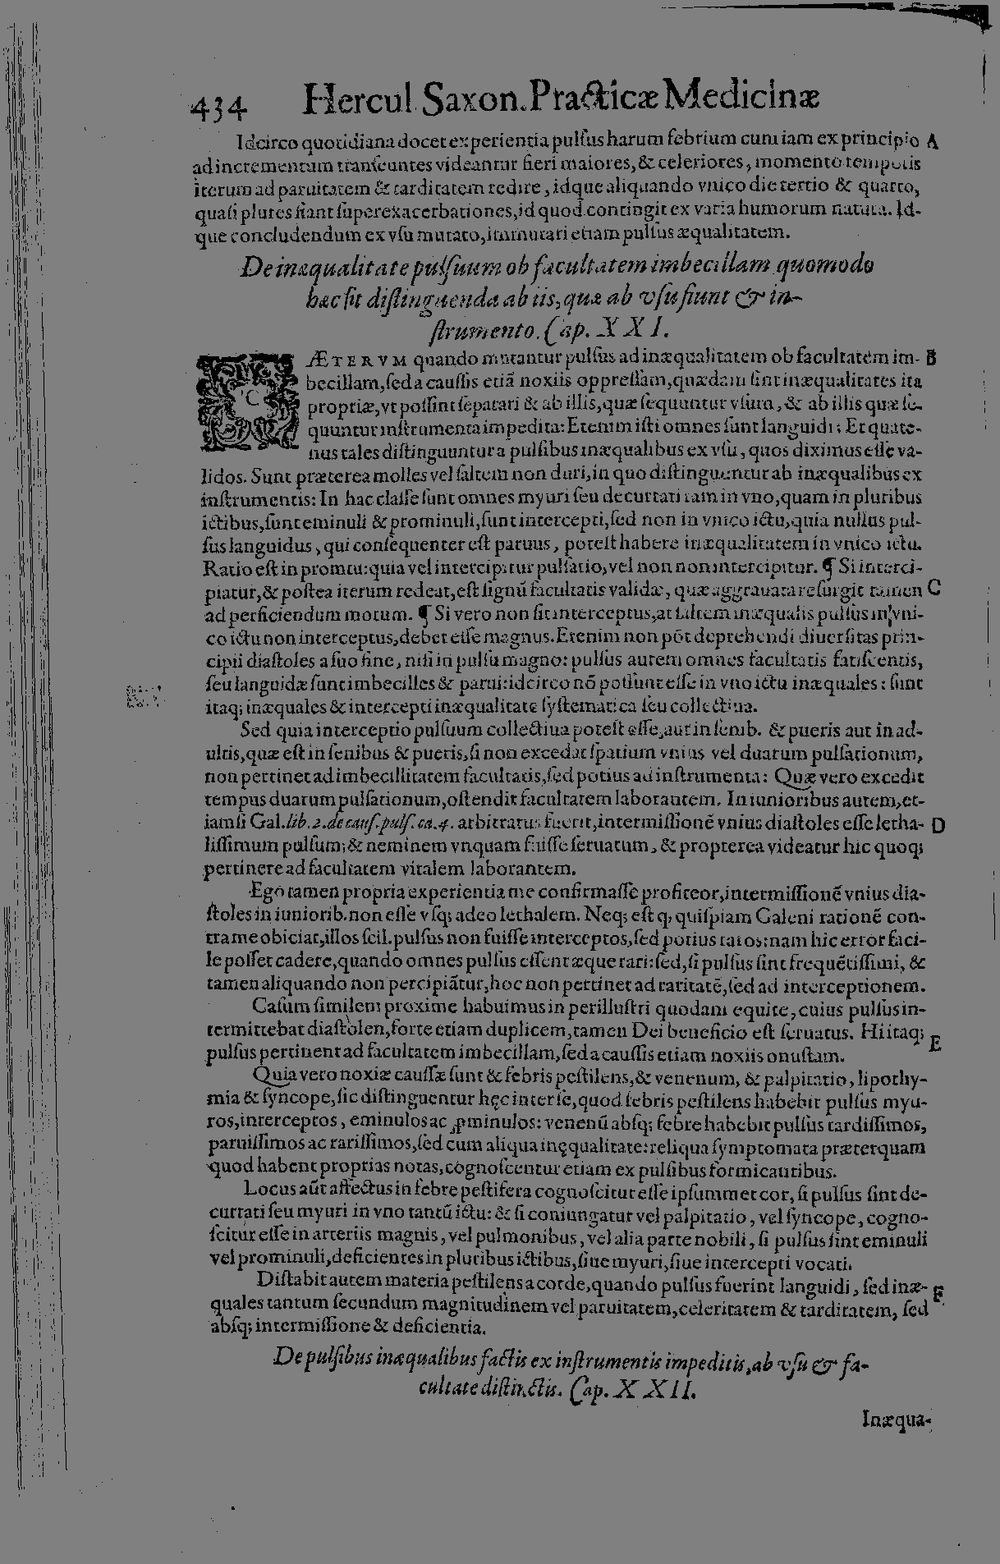 434 Hercul. Saxon. Practicæ Medicinæ
Idcirco quotidiana docet experientia pulſus harum febrium cum iam ex principio A
ad incrementum tranſeuntes videantur fieri maiores, & celeriores, momento temporis
iterum ad paruitatem & tarditatem redire, idque aliquando vnico die tertio & quarto,
quaſi plures fiant ſuperexacerbationes, id quod contingit ex varia humorum natura. Id-
que concludendum ex vſu mutato, immutari etiam pulſus æqualitatem.
De inæqualitate pulſuum ob facultatem imbecillam quomodo
hæc ſit diſtinguenda ab iis, quæ ab vſu fiunt & in-
ſtrumento. Cap. XXI.
CÆTERVM quando mutantur pulſus ad inæqualitatem ob facultatem im- B
becillam, ſed a cauſſis etiã noxiis oppreſſam, quædam ſint inæqualitates ita
propriæ, vt poſſint ſeparari & ab illis, quæ ſequuntur vſum, & ab illis quæ ſe-
quuntur inſtrumenta impedita: Etenim iſti omnes ſunt languidi; Et quate-
nus tales diſtinguuntur a pulſibus inæqualibus ex vſu, quos diximus eſſe va-
lidos. Sunt præterea molles vel ſaltem non duri, in quo diſtinguentur ab inæqualibus ex
inſtrumentis: In hac claſſe ſunt omnes myuri ſeu decurtati tam in vno, quam in pluribus
ictibus, ſunt eminuli & prominuli, ſunt intercepti, ſed non in vnico ictu, quia nullus pul-
ſus languidus, qui conſequenter eſt paruus, poteſt habere inæqualitatem in vnico ictu.
Ratio eſt in promtu: quia vel intercipitur pulſatio, vel non non intercipitur. ¶ Si interci-
piatur, & poſtea iterum redeat, eſt ſignũ facultatis validæ, quæ aggrauata reſurgit tamen C
ad perficiendum motum. ¶ Si vero non ſit interceptus, at ſaltem inæqualis pulſus in vni-
co ictu non interceptus, debet eſſe magnus. Etenim non põt deprehendi diuerſitas prin-
cipii diaſtoles a ſuo fine, niſi in pulſu magno: pulſus autem omnes facultatis fatiſcentis,
ſeu languidæ ſunt imbecilles & parui: idcirco nõ poſſunt eſſe in vno ictu inæquales: ſunt
itaq; inæquales & intercepti inæqualitate ſyſtematica ſeu collectiua.
Sed quia interceptio pulſuum collectiua poteſt eſſe, aut in ſenib. & pueris aut in ad-
ultis, quæ eſt in ſenibus & pueris, ſi non excedat ſpatium vnius vel duarum pulſationum,
non pertinet ad imbecillitatem facultatis, ſed potius ad inſtrumenta: Quæ vero excedit
tempus duarum pulſationum, oſtendit facultatem laborantem. In iunioribus autem, et-
iamſi Gal. lib. 2. de cauſ. pulſ. ca. 4. arbitratus fuerit, intermiſſionẽ vnius diaſtoles eſſe letha- D
liſſimum pulſum; & neminem vnquam fuiſſe ſeruatum, & propterea videatur hic quoq;
pertinere ad facultatem vitalem laborantem.
Ego tamen propria experientia me confirmaſſe profiteor, intermiſſionẽ vnius dia-
ſtoles in iuniorib. non eſſe vſq; adeo lethalem. Neq; eſt q, quiſpiam Galeni rationẽ con-
tra me obiciat, illos ſcil. pulſus non fuiſſe interceptos, ſed potius raros: nam hic error faci-
le poſſet cadere, quando omnes pulſus eſſent æque rari: ſed, ſi pulſus ſint frequẽtiſſimi, &
tamen aliquando non percipiãtur, hoc non pertinet ad raritatẽ, ſed ad interceptionem.
Caſum ſimilem proxime habuimus in perilluſtri quodam equite, cuius pulſus in-
termittebat diaſtolen, forte etiam duplicem, tamen Dei beneficio eſt ſeruatus. Hi itaq; E
pulſus pertinent ad facultatem imbecillam, ſed a cauſſis etiam noxiis onuſtam.
Quia vero noxiæ cauſſæ ſunt & febris peſtilens, & venenum, & palpitatio, lipothy-
mia & ſyncope, ſic diſtinguentur hęc inter ſe, quod febris peſtilens habebit pulſus myu-
ros, interceptos, eminulos ac ꝓminulos: venenũ abſq; febre habebit pulſus tardiſſimos,
paruiſſimos ac rariſſimos, ſed cum aliqua inęqualitate: reliqua ſymptomata præterquam
quod habent proprias notas, cognoſcentur etiam ex pulſibus formicantibus.
Locus aũt affectus in febre peſtifera cognoſcitur eſſe ipſummet cor, ſi pulſus ſint de-
currati ſeu myuri in vno tantũ ictu: & ſi coniungatur vel palpitatio, vel ſyncope, cogno-
ſcitur eſſe in arteriis magnis, vel pulmonibus, vel alia parte nobili, ſi pulſus ſint eminuli
vel prominuli, deficientes in pluribus ictibus, ſiue myuri, ſiue intercepti vocati.
Diſtabit autem materia peſtilens a corde, quando pulſus fuerint languidi, ſed inæ- F
quales tantum ſecundum magnitudinem vel paruitatem, celeritatem & tarditatem, ſed
abſq; intermiſſione & deficientia.
De pulſibus inæqualibus factis ex inſtrumentis impeditis, ab vſu & fa-
cultate diſtinctis. Cap. XXII.
Inæqua-